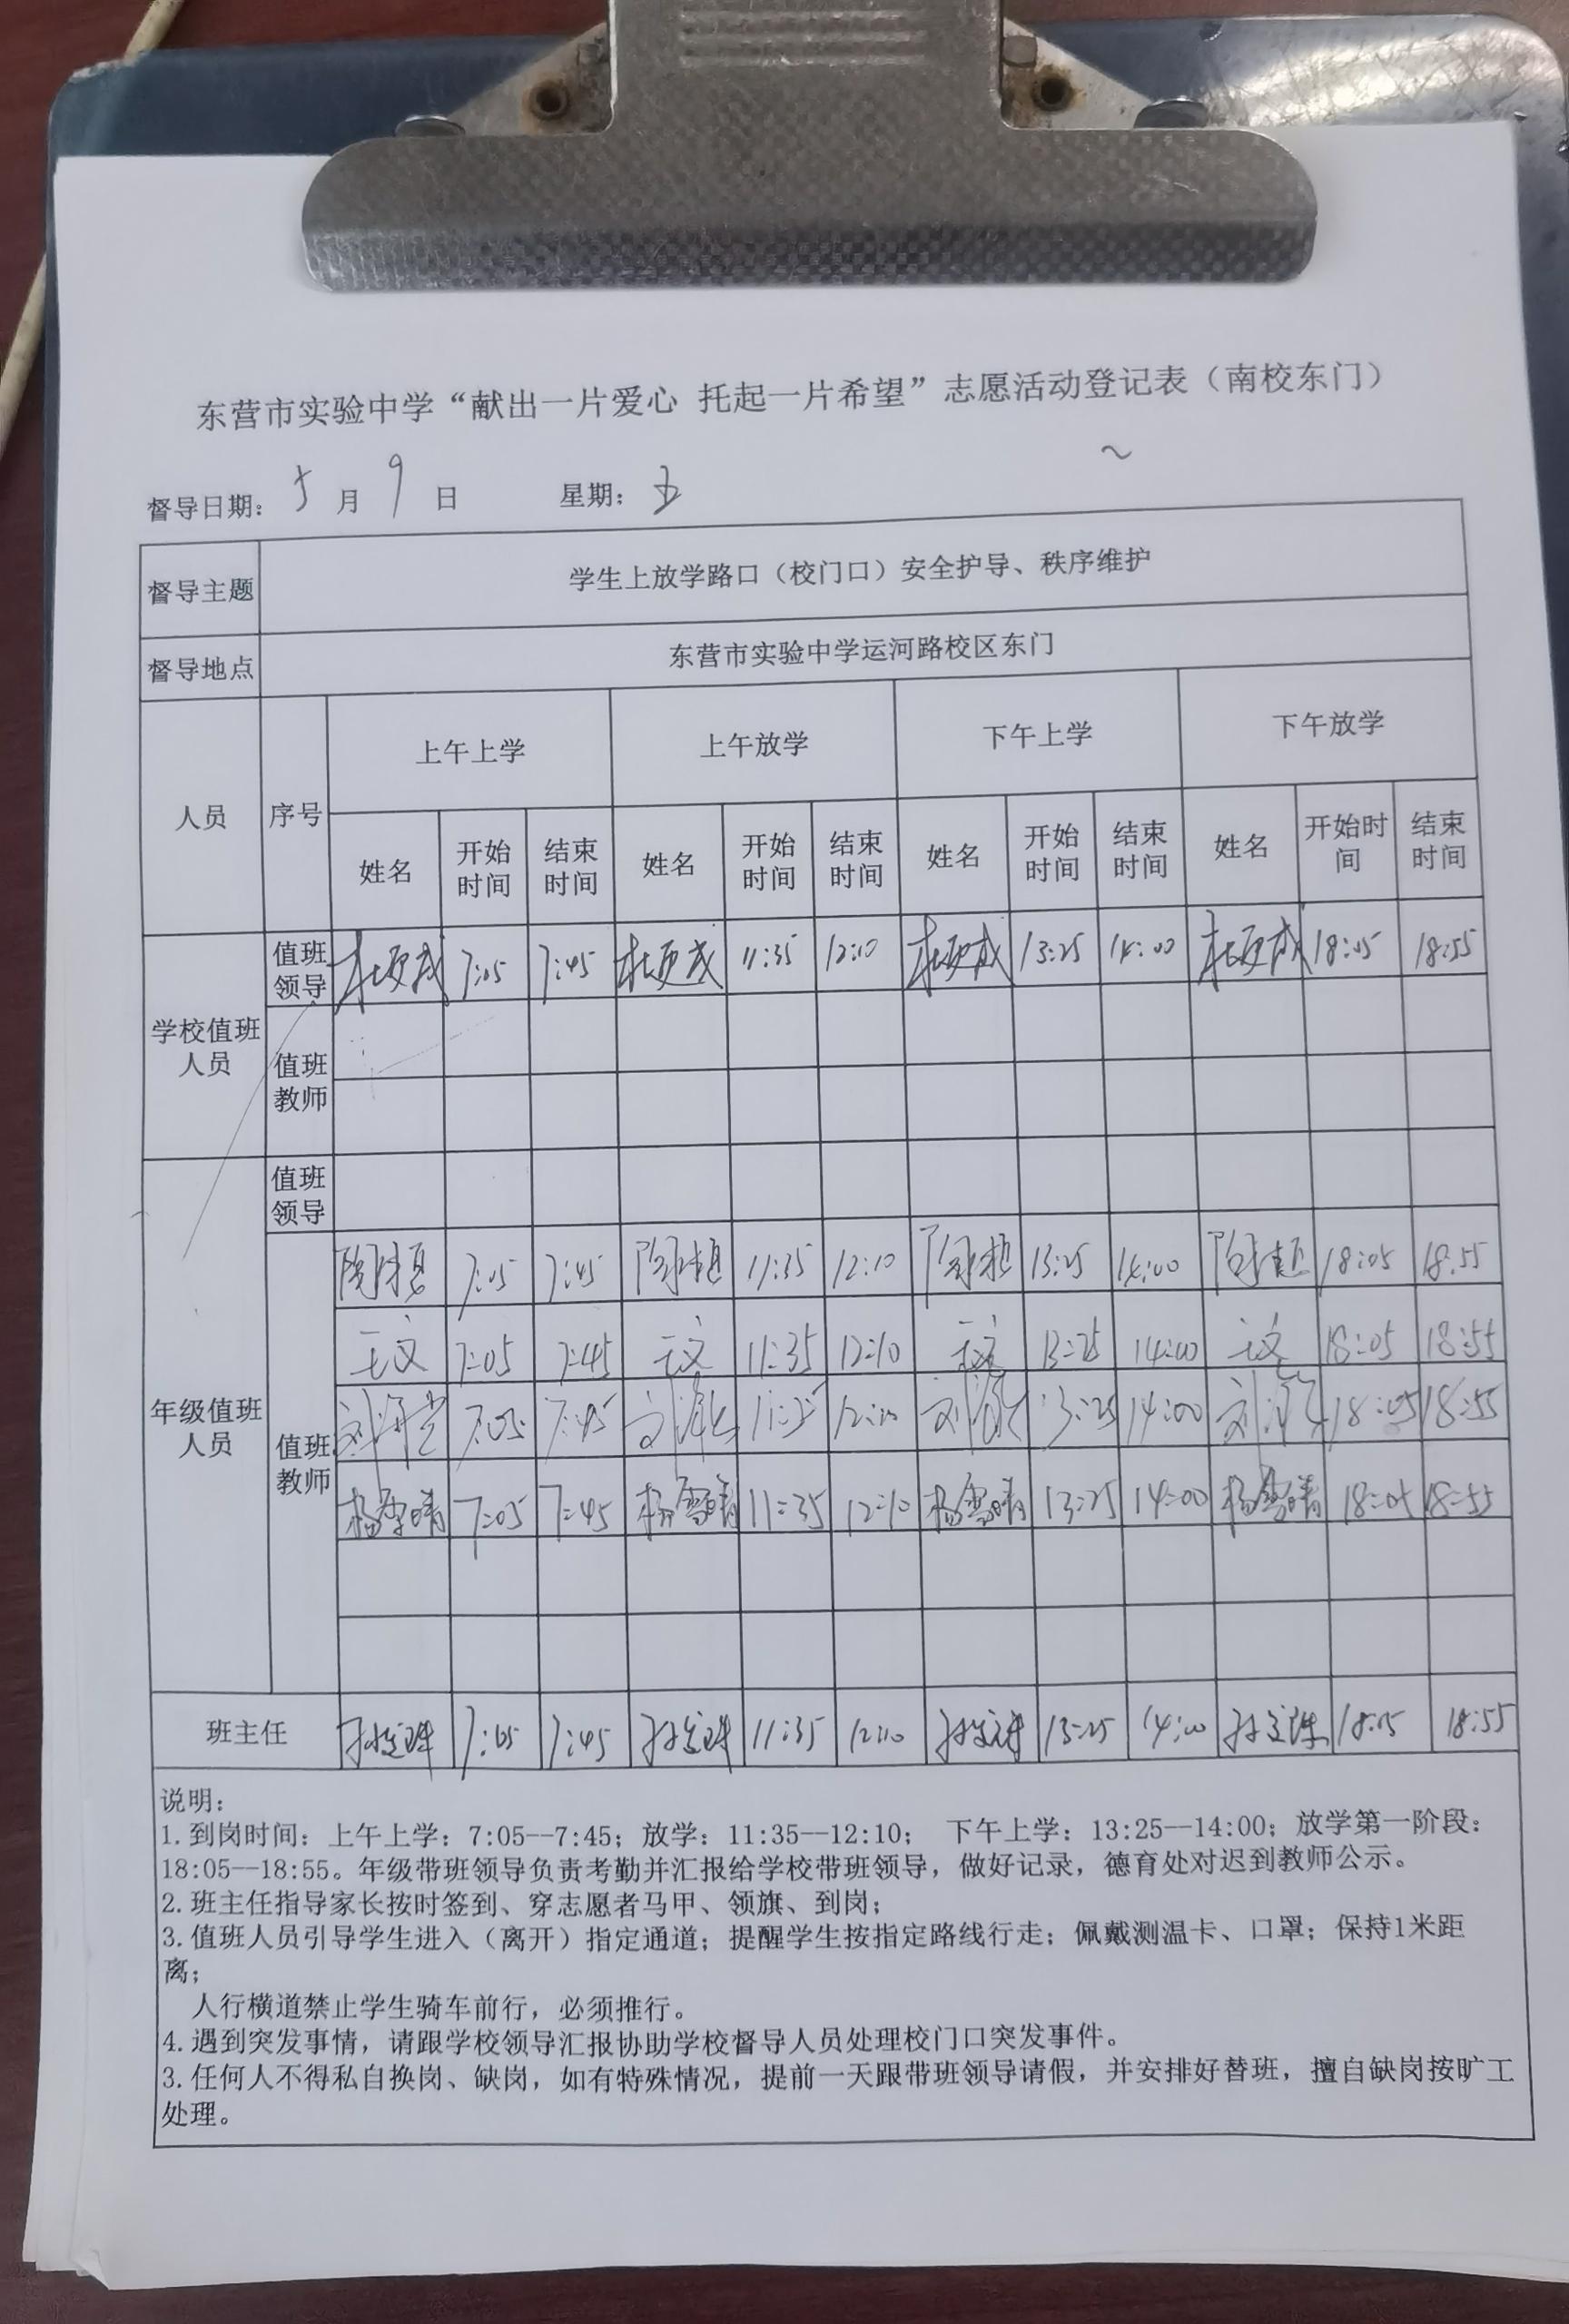 东营市实验中学“献出一片爱心 托起一片希望”志愿活动登记表（南校东门）
督导日期： 5 月 9 日 星期： 五
督导主题 学生上放学路口（校门口）安全护导、秩序维护
督导地点 东营市实验中学运河路校区东门
人员 序号 上午上学 上午放学 下午上学 下午放学
姓名 开始时间 结束时间 姓名 开始时间 结束时间 姓名 开始时间 结束时间 姓名 开始时间 结束时间
学校值班人员
值班领导 7:05 7:45 11:35 12:10 13:25 14:00 18:05 18:55
值班教师
年级值班人员
值班领导
值班教师
7:05 7:45 11:35 12:10 13:25 14:00 18:05 18:55
王文 7:05 7:45 王文 11:35 12:10 王文 13:25 14:00 王文 18:05 18:55
7:05 7:45 11:35 12:10 13:25 14:00 18:05 18:55
杨雪晴 7:05 7:45 杨雪晴 11:35 12:10 杨雪晴 13:25 14:00 杨雪晴 18:05 18:55
班主任 7:05 7:45 11:35 12:10 13:25 14:00 18:05 18:55
说明：
1.到岗时间：上午上学：7:05--7:45；放学：11:35--12:10； 下午上学：13:25--14:00；放学第一阶段：
18:05--18:55。年级带班领导负责考勤并汇报给学校带班领导，做好记录，德育处对迟到教师公示。
2.班主任指导家长按时签到、穿志愿者马甲、领旗、到岗；
3.值班人员引导学生进入（离开）指定通道；提醒学生按指定路线行走；佩戴测温卡、口罩；保持1米距
离；
人行横道禁止学生骑车前行，必须推行。
4.遇到突发事情，请跟学校领导汇报协助学校督导人员处理校门口突发事件。
3.任何人不得私自换岗、缺岗，如有特殊情况，提前一天跟带班领导请假，并安排好替班，擅自缺岗按旷工
处理。